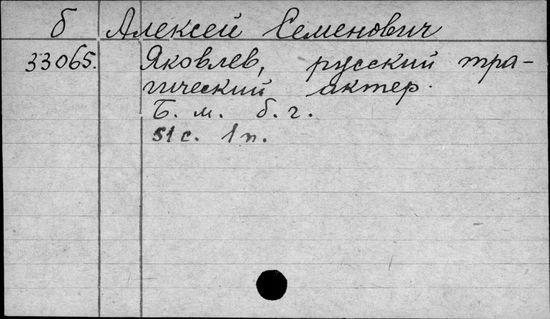 б Алексей Семенович
33065. Яковлев, русский тра-
гический актер.
Б. м. б. г.
51 с. 1 п.